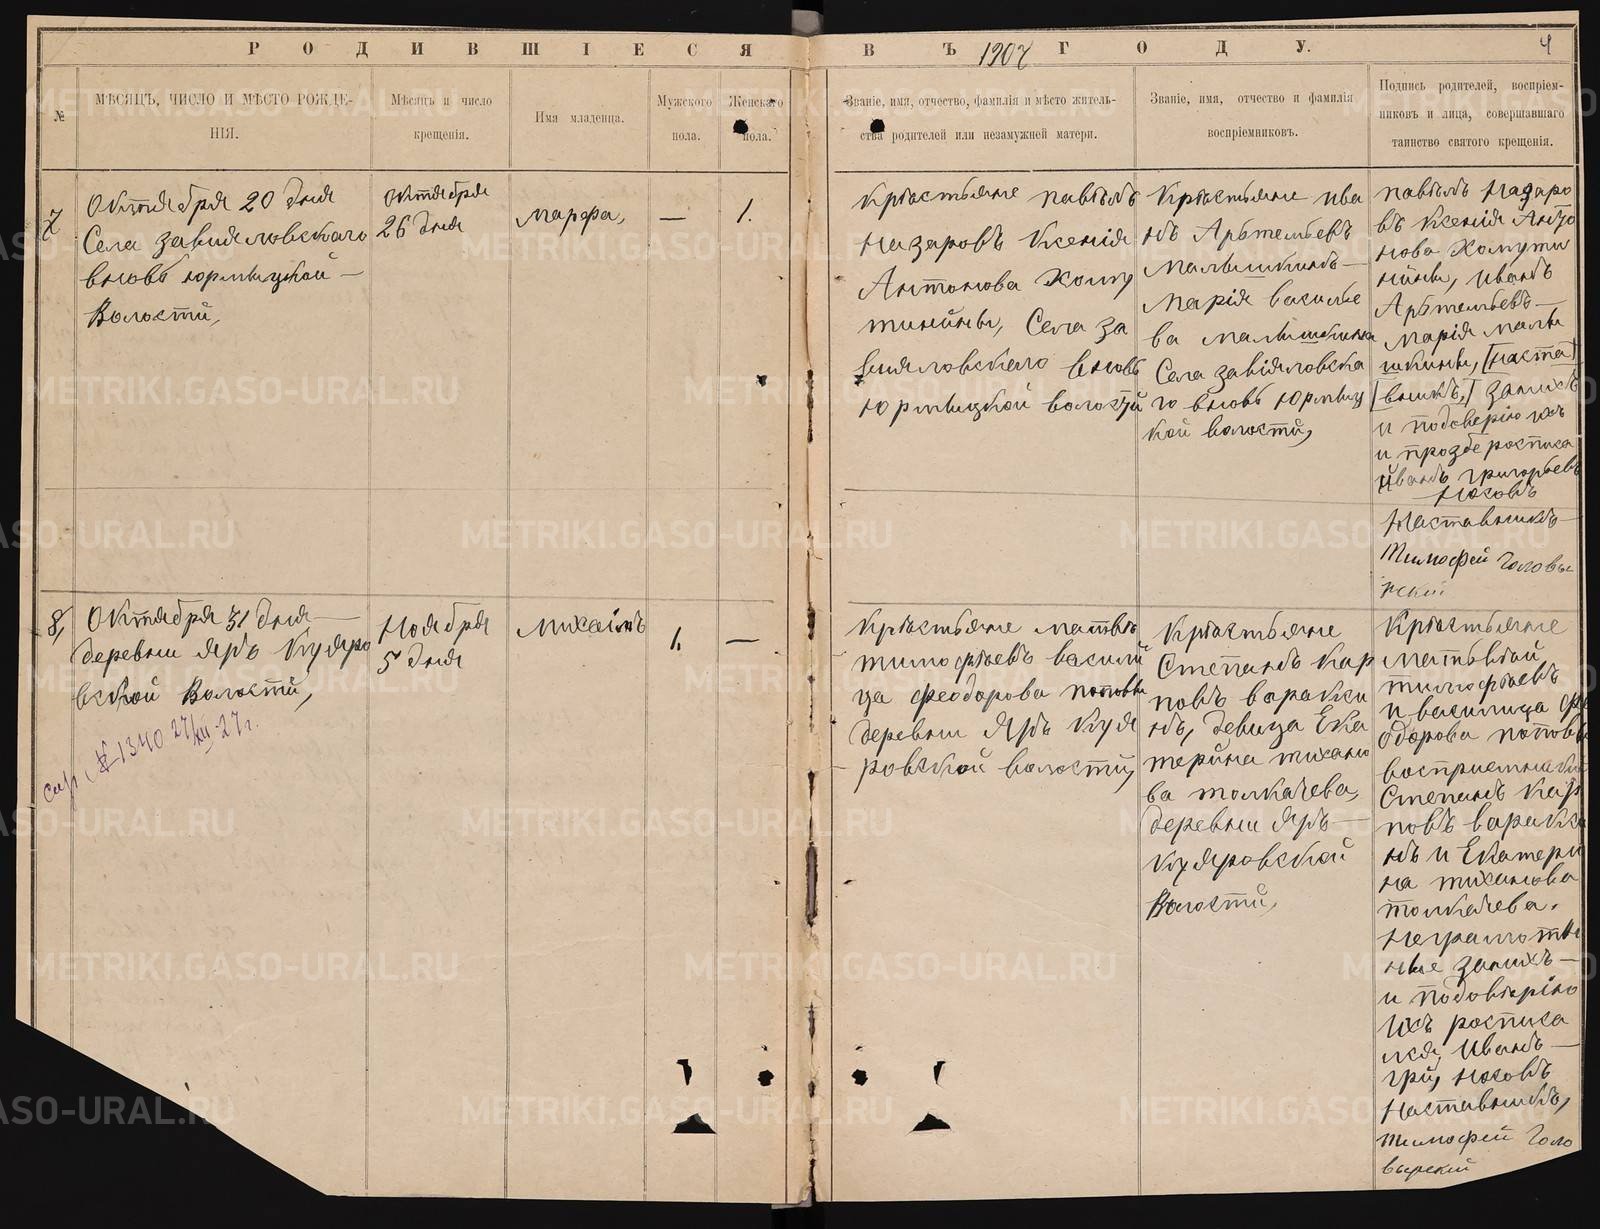 РОДИВШІЕСЯ ВЪ 1907 ГОДУ.
4
№
МѢСЯЦЪ, ЧИСЛО И МѢСТО РОЖДЕ-
НІЯ.
Мѣсяцъ и число
крещенія.
Имя младенца.
Мужского
пола.
Женскаго
пола.
Званіе, имя, отчество, фамилія и мѣсто житель-
ства родителей или незамужней матери.
Званіе, имя, отчество и фамилія
воспріемниковъ.
Подпись родителей, воспріем-
никовъ и лица, совершавшаго
таинство святого крещенія.
7
Октября 20 дня
Села завьяловскаго
вновь юрмыцкой —
Волости,
Октября
26 дня
марфа,
—
1.
Крѣстьяне павѣлъ
Назаровъ Ксенія
Антонова Хому
тинины, Села за
вьяловскаго вновь
юрмыцкой волостй
Крѣстьяне ива
нъ Арьтемьевъ
малышкинъ —
Марія василье
ва малышкина
Села завіяловска
го вновь юрмыц
кой волостй,
павѣлъ Назаро
въ Ксенія Анто
нова Хомути
нины, Иванъ
Арьтемьевъ —
марія малы
шкины, [наста]
[вникъ,] занихъ
и подоверію ихъ
и прозбе росписа
Иванъ григорьевъ
Носовъ
Наставникъ —
Тимофей Головы
нскій
8,
Октября 31 дня —
деревни Яръ Куяро
вской Волостй,
Ноября
5 дня
михаилъ
1,
—
1340 27/XII-27 г.
Крѣстьяне матвѣ
тимофѣевъ василй
ца феодорова поповы
деревни Яръ Куя
ровской волостй,
Крѣстьяне
Степанъ Кар
повъ вараксй
нъ, девица Ека
терйна тихано
ва толкачева,
деревни Яръ —
Куяровской
Волостй,
Крѣстьяне
Матьвѣй
тимофѣевъ
и василица фе
одорова поповы
восприемники
Степанъ Кар
повъ варакси
нъ и Екатери
на тиханова
толкачева.
Неграмотн
ные занихъ —
и подовѣрію
ихъ росписа
лся, Иванъ —
гри, носовъ
Наставникъ,
Тимофей Голо
вынскій
METRIKI.GASO-URAL.RU